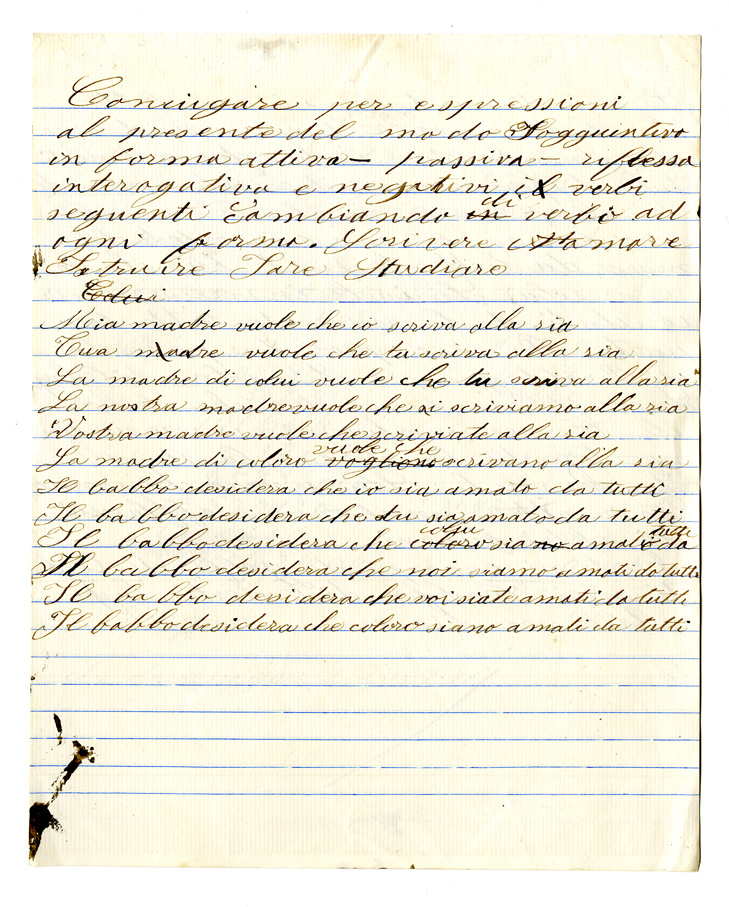 Coniugare per espressioni
al presente del modo Sogguintivo
in forma attiva – passiva – riflessa
interogativa e negativi il verbi
seguenti Cambiando di verbo ad
ogni forma. Scrivere amare
Istruire Fare Studiare
Mia madre vuole che io scriva alla zia
Tua madre vuole che tu scriva alla zia
La madre di colui vuole che scriva alla zia
La nostra madre vuole che si scriviamo alla zia
Vostra madre vuole che scriviate alla zia
La madre di coloro vuole che scrivano alla zia
Il babbo desidera che io sia amato da tutti
Il babbo desidera che tu sia amato da tutti
Il babbo desidera che colui sia amato da tutti
Il babbo desidera che noi siamo amati da tutti
Il babbo desidera che voi siate amati da tutti
Il babbo desidera che coloro siano amati da tutti